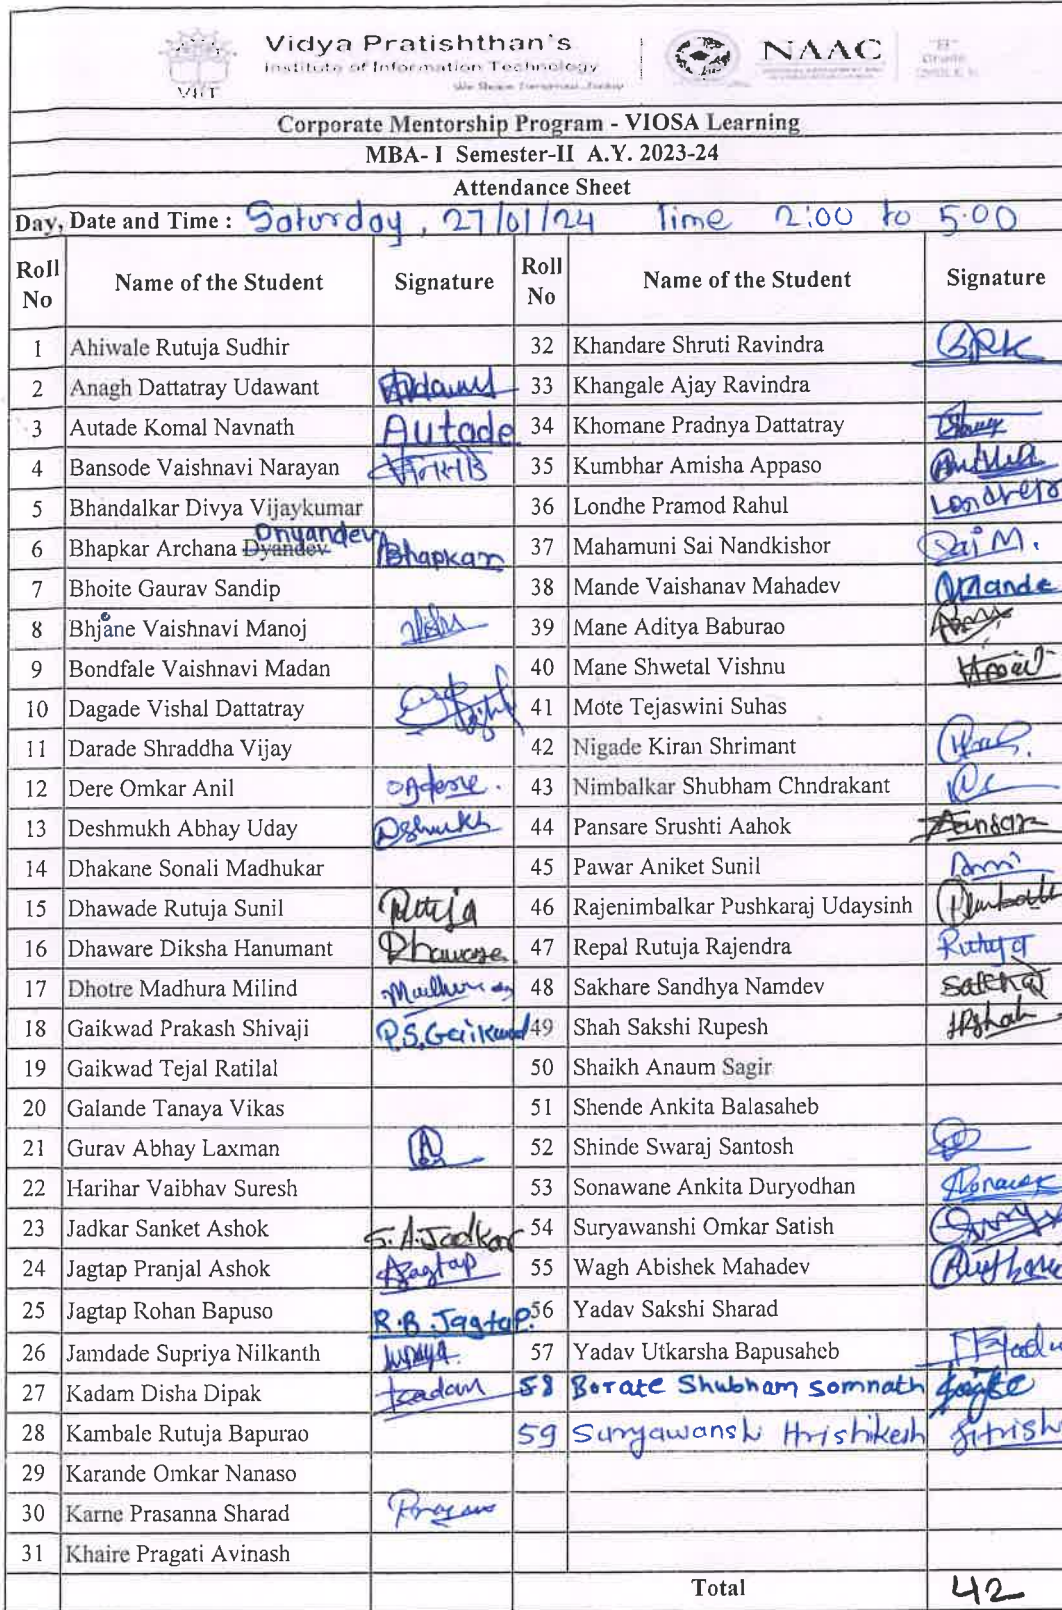 Vidya Pratishthan's
Institute of Information Technology
VIIT
NAAC
"B"
Grade
Corporate Mentorship Program - VIOSA Learning
MBA- I Semester-II A.Y. 2023-24
Attendance Sheet
Day, Date and Time : Saturday, 27/01/24 Time 2:00 to 5.00
Roll No Name of the Student Signature Roll No Name of the Student Signature
1 Ahiwale Rutuja Sudhir 32 Khandare Shruti Ravindra SRK
2 Anagh Dattatray Udawant 33 Khangale Ajay Ravindra
3 Autade Komal Navnath Autade 34 Khomane Pradnya Dattatray
4 Bansode Vaishnavi Narayan 35 Kumbhar Amisha Appaso
5 Bhandalkar Divya Vijaykumar 36 Londhe Pramod Rahul
6 Bhapkar Archana Dyandev Dnyandev Bhapkar 37 Mahamuni Sai Nandkishor Sai M.
7 Bhoite Gaurav Sandip 38 Mande Vaishanav Mahadev Mande
8 Bhjane Vaishnavi Manoj 39 Mane Aditya Baburao
9 Bondfale Vaishnavi Madan 40 Mane Shwetal Vishnu
10 Dagade Vishal Dattatray 41 Mote Tejaswini Suhas
11 Darade Shraddha Vijay 42 Nigade Kiran Shrimant
12 Dere Omkar Anil 43 Nimbalkar Shubham Chndrakant
13 Deshmukh Abhay Uday 44 Pansare Srushti Aahok
14 Dhakane Sonali Madhukar 45 Pawar Aniket Sunil
15 Dhawade Rutuja Sunil Rutuja 46 Rajenimbalkar Pushkaraj Udaysinh
16 Dhaware Diksha Hanumant 47 Repal Rutuja Rajendra Rutuja
17 Dhotre Madhura Milind 48 Sakhare Sandhya Namdev
18 Gaikwad Prakash Shivaji P.S.Gaikwad 49 Shah Sakshi Rupesh
19 Gaikwad Tejal Ratilal 50 Shaikh Anaum Sagir
20 Galande Tanaya Vikas 51 Shende Ankita Balasaheb
21 Gurav Abhay Laxman 52 Shinde Swaraj Santosh
22 Harihar Vaibhav Suresh 53 Sonawane Ankita Duryodhan
23 Jadkar Sanket Ashok S.A.Jadkar 54 Suryawanshi Omkar Satish
24 Jagtap Pranjal Ashok Jagtap 55 Wagh Abishek Mahadev
25 Jagtap Rohan Bapuso R.B.Jagtap. 56 Yadav Sakshi Sharad
26 Jamdade Supriya Nilkanth 57 Yadav Utkarsha Bapusaheb
27 Kadam Disha Dipak Kadam 58 Borate Shubham somnath
28 Kambale Rutuja Bapurao 59 Suryawanshi Hrishikesh
29 Karande Omkar Nanaso
30 Karne Prasanna Sharad
31 Khaire Pragati Avinash
Total 42